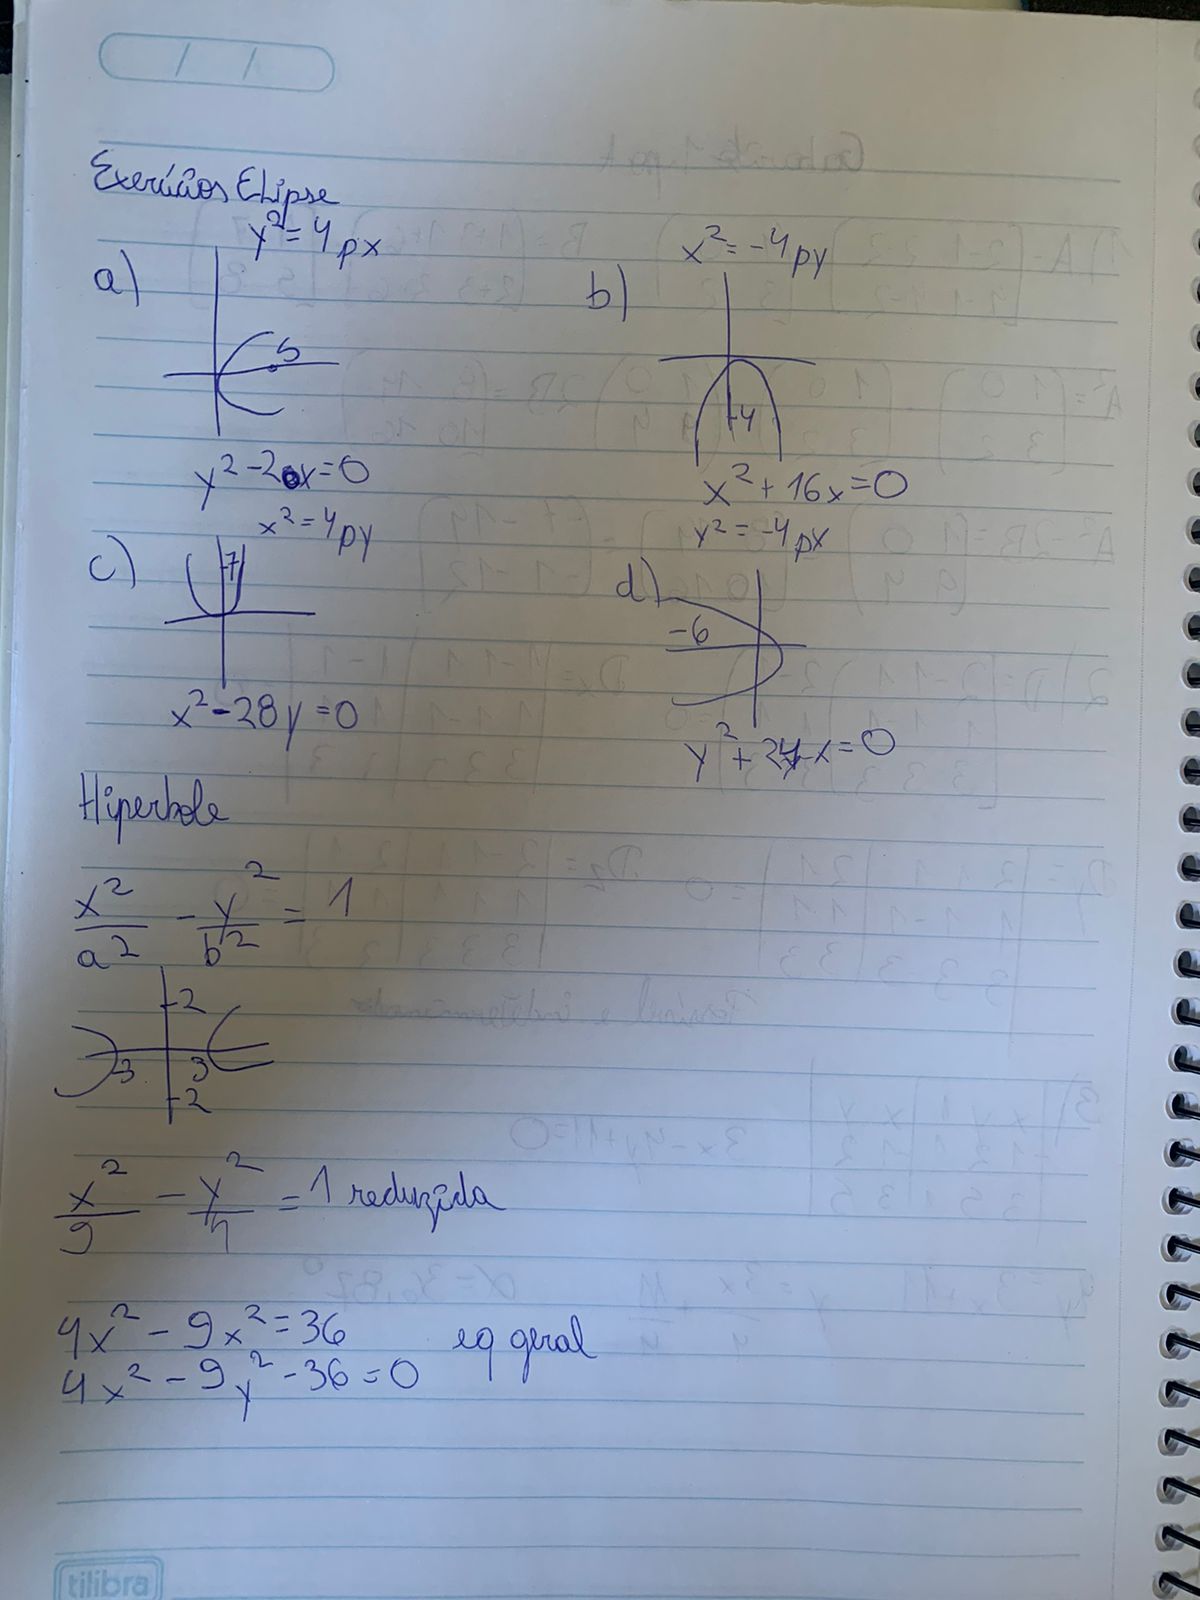 Exercícios Elipse
y² = 4px
a)
5
y² - 20x = 0
x² = -4py
b)
-4
x² + 16x = 0
x² = 4py
c)
7
x² - 28y = 0
y² = -4px
d)
-6
y² + 24x = 0
Hiperbole
x²/a² - y²/b² = 1
2
-3 3
-2
x²/9 - y²/4 = 1 reduzida
4x² - 9x² = 36 eq geral
4x² - 9y² - 36 = 0
tilibra